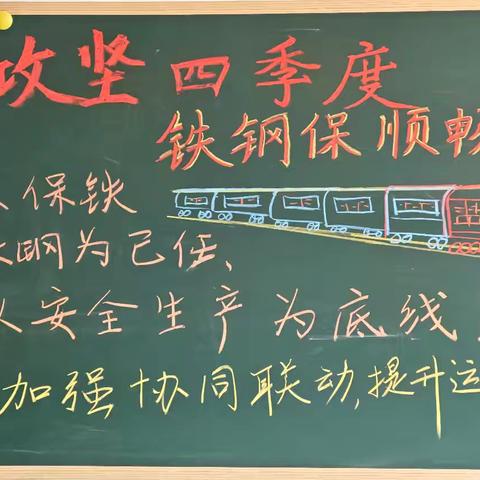 攻坚四季度
铁钢保顺畅
保铁
钢为己任、
以安全生产为底线,
加强协同联动,提升运